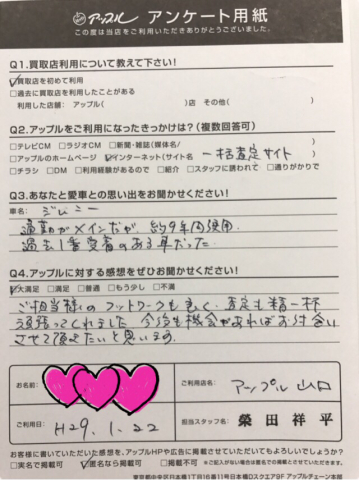 アップル アンケート用紙
この度は当店をご利用いただきありがとうございました。
Q1.買取店利用について教えて下さい!
☑買取店を初めて利用
□過去に買取店を利用したことがある
利用した店舗: アップル( )店 その他( )
Q2.アップルをご利用になったきっかけは?(複数回答可)
□テレビCM □ラジオCM □新聞・雑誌(媒体名/ )
□アップルのホームページ ☑インターネット(サイト名 一括査定サイト )
□チラシ □DM □利用経験があるので □紹介 □スタッフに誘われて □通りがかりで
Q3.あなたと愛車との思い出をお聞かせください!
車名: ジムニー
通勤がメインだが、約9年間使用。
過去1番愛着のある車だった。
Q4.アップルに対する感想をぜひお聞かせください!
☑大満足 □満足 □普通 □もう少し □不満
ご担当様のフットワークも良く、査定も精一杯
頑張ってくれました 今後も機会があればお付合い
させて頂きたいと思います。
お名前:
ご利用店名: アップル 山口
ご利用日: H29.1.22
担当スタッフ名: 榮田 祥平
お客様に書いていただいた感想を、アップルHPや広告に掲載させていただいてもよろしいでしょうか?
□実名で掲載可 ☑匿名なら掲載可 □掲載不可 ※ご記入がない場合は匿名での掲載とさせていただきます。
東京都中央区日本橋1丁目16番11号日本橋Dスクエア9F アップルチェーン本部